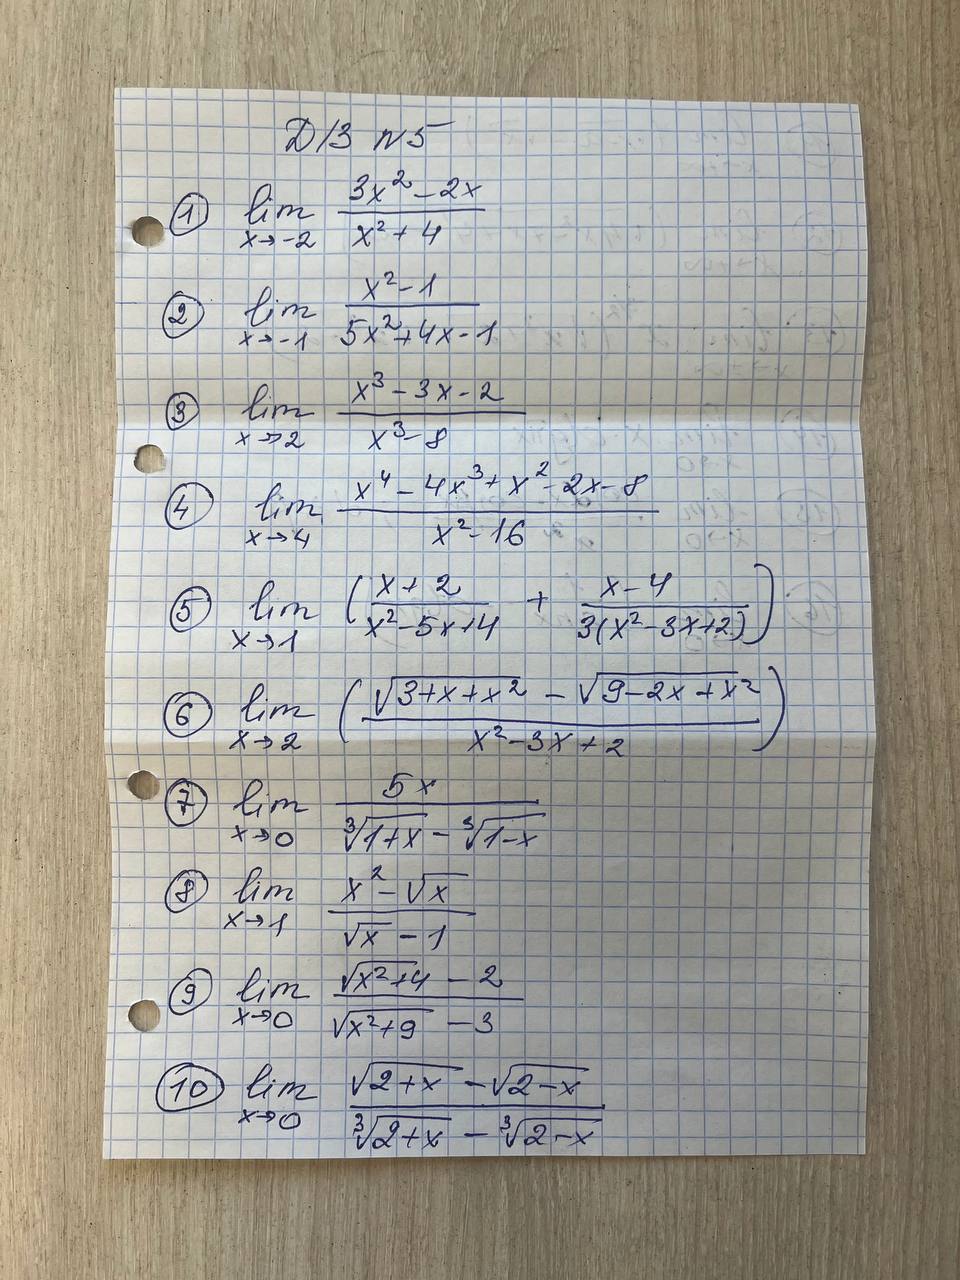 Д/З №5
① lim x→-2 (3x² - 2x)/(x² + 4)
② lim x→-1 (x² - 1)/(5x² + 4x - 1)
③ lim x→2 (x³ - 3x - 2)/(x³ - 8)
④ lim x→4 (x⁴ - 4x³ + x² - 2x - 8)/(x² - 16)
⑤ lim x→1 ((x + 2)/(x² - 5x + 4) + (x - 4)/(3(x² - 3x + 2)))
⑥ lim x→2 ((√(3 + x + x²) - √(9 - 2x + x²))/(x² - 3x + 2))
⑦ lim x→0 5x/(∛(1+x) - ∛(1-x))
⑧ lim x→1 (x² - √x)/(√x - 1)
⑨ lim x→0 (√(x² + 4) - 2)/(√(x² + 9) - 3)
⑩ lim x→0 (√(2+x) - √(2-x))/(∛(2+x) - ∛(2-x))